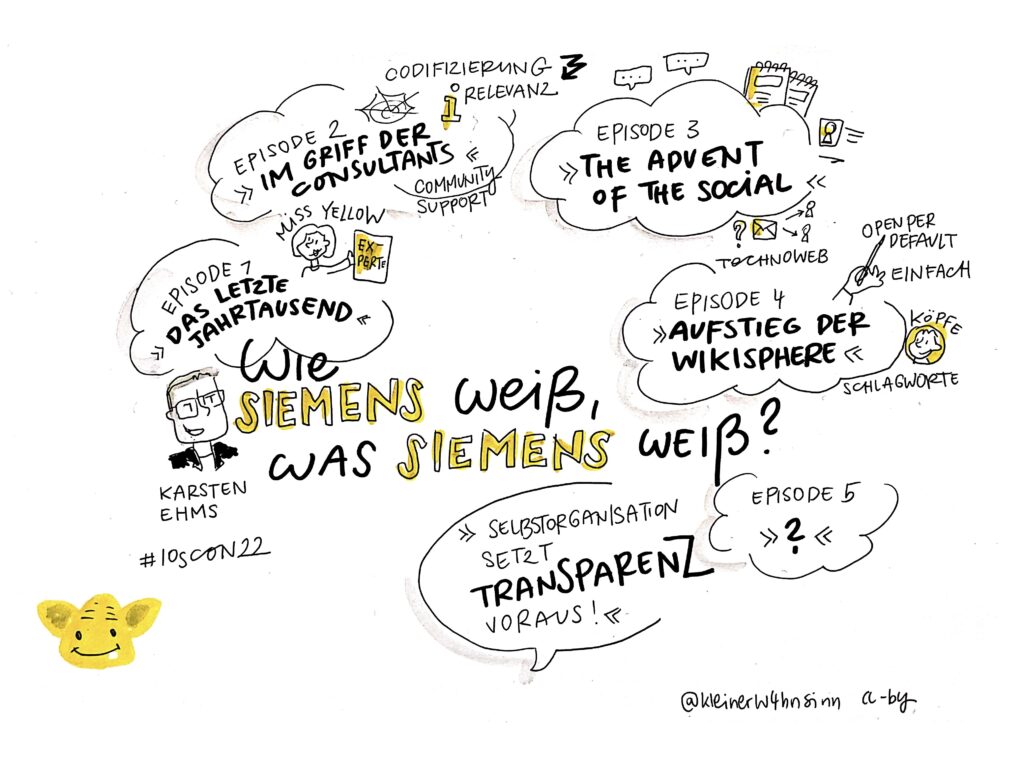 CODIFIZIERUNG
RELEVANZ
i
EPISODE 2
»IM GRIFF DER
CONSULTANTS«
COMMUNITY
SUPPORT
EPISODE 3
»THE ADVENT
OF THE SOCIAL«
?
TECHNOWEB
MISS YELLOW
EX-
PERTE
EPISODE 1
»DAS LETZTE
JAHRTAUSEND«
OPEN PER
DEFAULT
EINFACH
EPISODE 4
»AUFSTIEG DER
WIKISPHERE«
KÖPFE
SCHLAGWORTE
WIE
SIEMENS WEIß,
WAS SIEMENS WEIß?
KARSTEN
EHMS
#IOSCON22
»SELBSTORGANISATION
SETZT
TRANSPARENZ
VORAUS!«
EPISODE 5
»?«
@kleinerw4hnsinn a-by